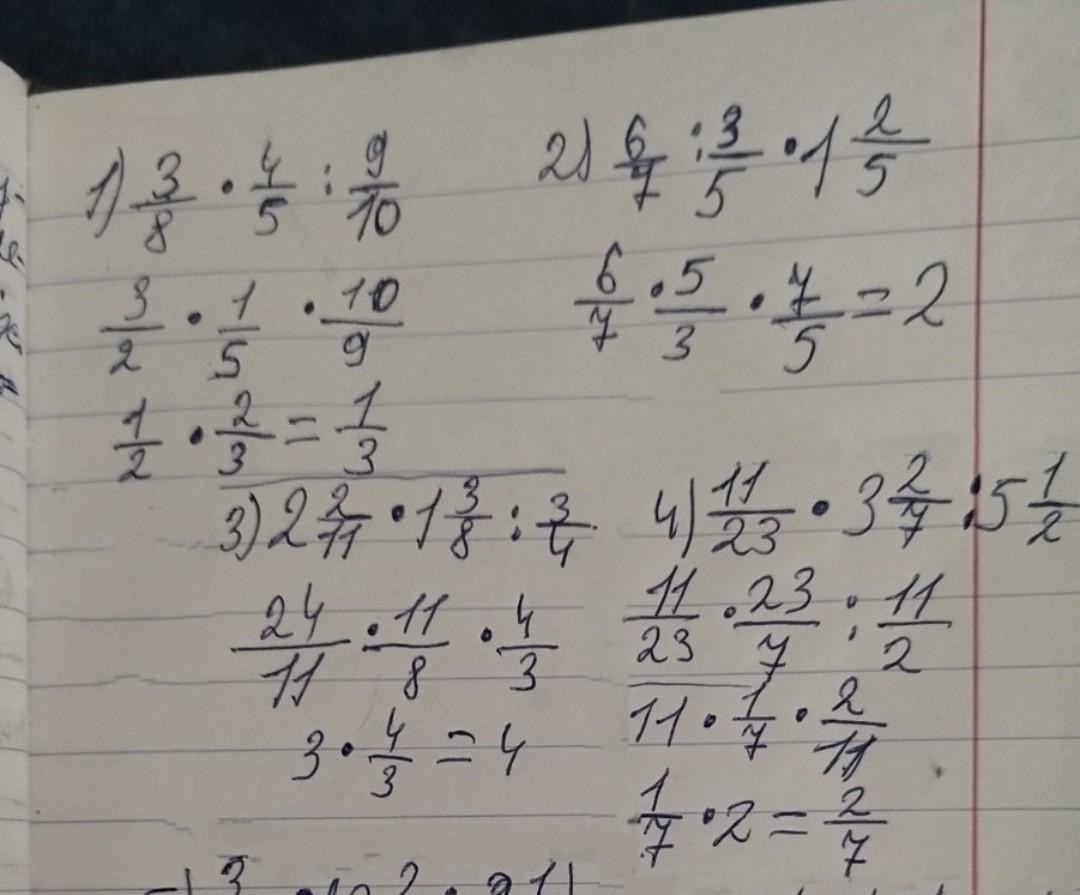 1) 3/8 · 4/5 : 9/10
3/2 · 1/5 · 10/9
1/2 · 2/3 = 1/3
2) 6/7 : 3/5 · 1 2/5
6/7 · 5/3 · 7/5 = 2
3) 2 2/11 · 1 3/8 : 3/4
24/11 · 11/8 · 4/3
3 · 4/3 = 4
4) 11/23 · 3 2/7 : 5 1/2
11/23 · 23/7 : 11/2
11 · 1/7 · 2/11
1/7 · 2 = 2/7